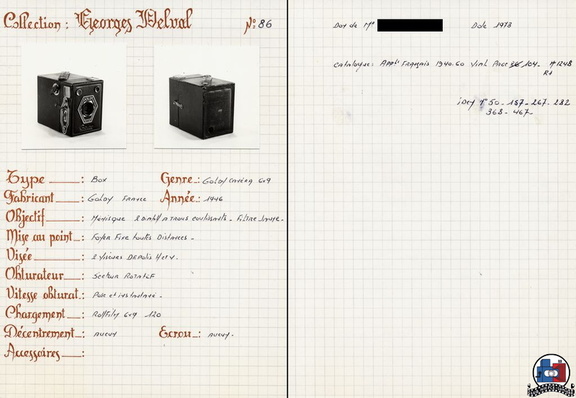 Collection : Georges Delval N° 86
Type : Box Genre : 6x9
Fabricant : Goldy France Année : 1946
Objectif : Menisque
Mise au point : Foyer Fixe toutes Distances -
Visée : 2 Viseurs Depolis
Obturateur : Secteur Rotatif
Vitesse obturat. : Pose et instantané -
Chargement : Rollfilm 6x9 120
Décentrement : aucun Ecrou : aucun -
Accessoires :
Don de Mr Date 1978
Catalogue : Français 1940-60 Vint Page 104 -
50 - 187 - 267 - 282
368 - 467 -